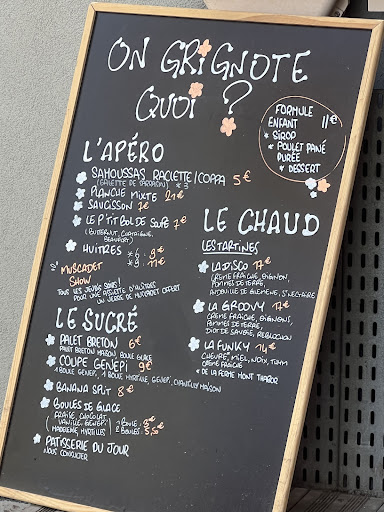 ON GRIGNOTE
QUOI ?
FORMULE
ENFANT 11€
* SIROP
* POULET PANÉ
PURÉE
* DESSERT
L'APÉRO
SAMOUSSAS RACLETTE/COPPA 5€
(GALETTE DE SARRASIN) * 3
PLANCHE MIXTE 21€
SAUCISSON
LE P'TIT BOL DE SOUPE 7€
(BUTTERNUT, CHÂTAIGNE,
BEAUFORT)
HUITRES * 6 - 9€
* 9 - 11€
MUSCADET
SHOW
TOUS LES JEUDIS SOIRS!
POUR UNE ASSIETTE D'HUITRES
UN VERRE DE MUSCADET OFFERT
LE CHAUD
LES TARTINES
LA DISCO 17€
CRÈME FRAÎCHE, OIGNON,
POMMES DE TERRE,
ANDOUILLE DE GUEMENE, ST NECTAIRE
LA GROOVY 17€
CRÈME FRAÎCHE, OIGNONS,
POMMES DE TERRE,
DIOT DE SAVOIE, REBLOCHON
LA FUNKY 14€
CHÈVRE, MIEL, NOIX, THYM
CRÈME FRAÎCHE
* DE LA FERME MONT THABOR
LE SUCRÉ
PALET BRETON 6€
PALET BRETON MAISON, BOULE GLACE
COUPE GENEPI 9€
1 BOULE GENEPI, 1 BOULE MYRTILLE, GENEPI, CHANTILLY MAISON
BANANA SPLIT 8€
BOULES DE GLACE
FRAISE, CHOCOLAT,
VANILLE, GENEPI 1 BOULE: 3€
MADELEINE, MYRTILLES 2 BOULES: 5,50€
PATISSERIE DU JOUR
NOUS CONSULTER